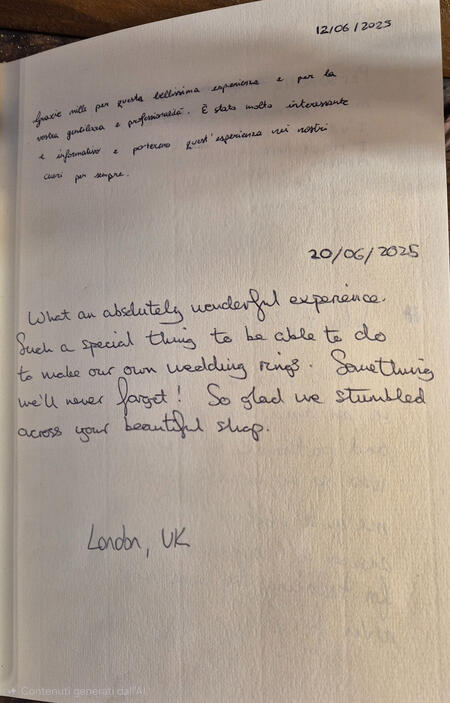 12/06/2025
Grazie mille per questa bellissima esperienza e per la
vostra gentilezza e professionalità. È stato molto interessante
e informativo e porteremo quest'esperienza nei nostri
cuori per sempre.
20/06/2025
What an absolutely wonderful experience.
Such a special thing to be able to do
to make our own wedding rings. Something
we'll never forget! So glad we stumbled
across your beautiful shop.
London, UK
Contenuti generati dall'AI